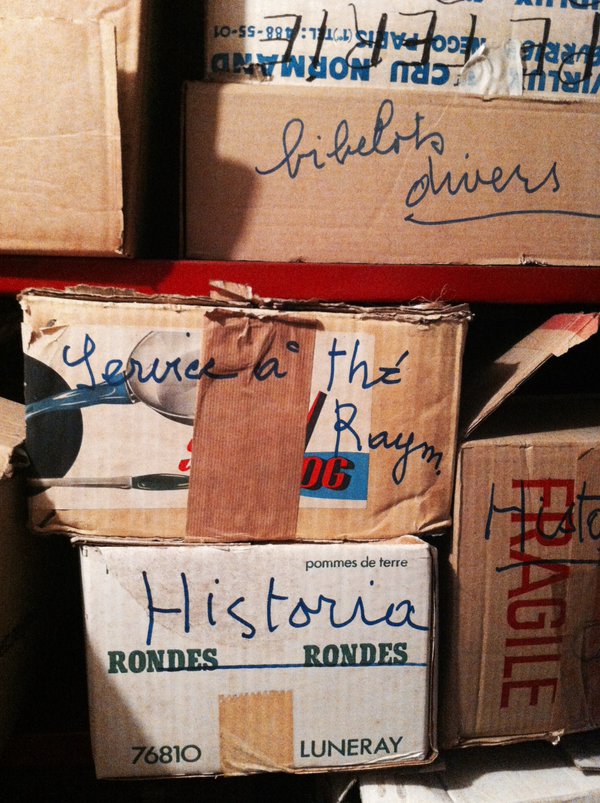 488-55-01
CRU NORMAND
bibelots
divers
Service à thé
Raym.
pommes de terre
Historia
RONDES RONDES
76810 LUNERAY
Histo
FRAGILE